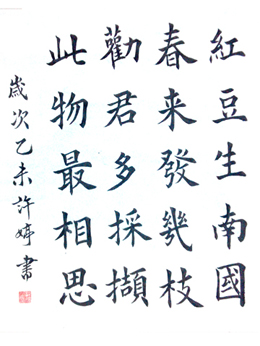 紅豆生南國
春来發幾枝
勸君多採擷
此物最相思
歲次乙未許婷書